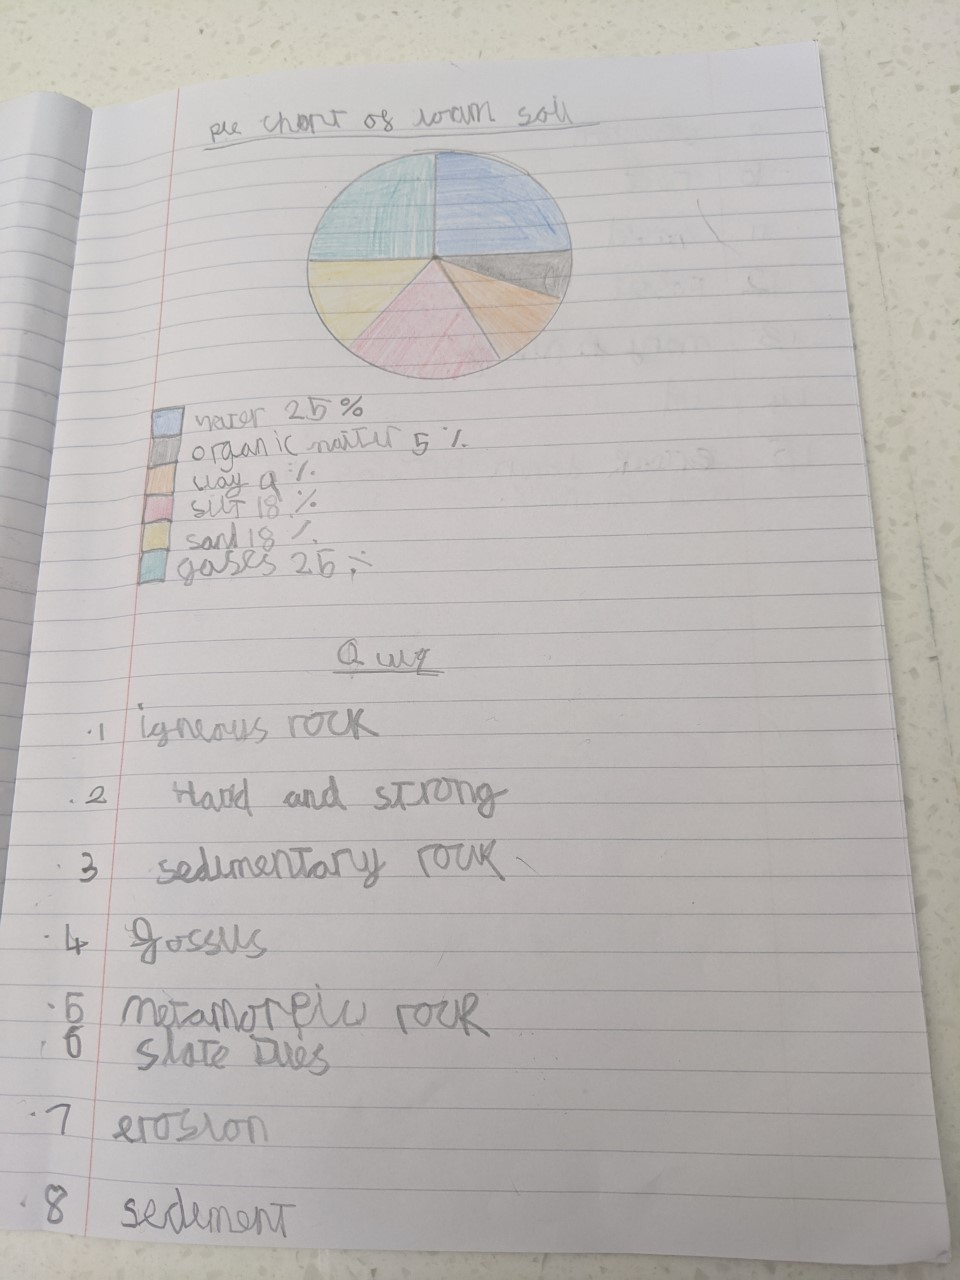 pie chart of loam soil
water 25%
organic matter 5%
clay 9%
silt 18%
sand 18%
gases 25%
Quiz
.1 igneous rock
.2 Hard and strong
.3 sedimentary rock
.4 gossus
.5 metamorpic rock
.6 slate tiles
.7 erosion
.8 sediment